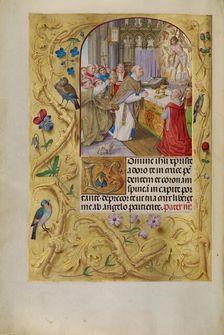 Domine ihu xpriste
adoro te in cruce pe
dentem et coronam
spineā in capite por
tante. deprecor te ut tua crux liberet
me ab angelo percutiente. Pater nr.